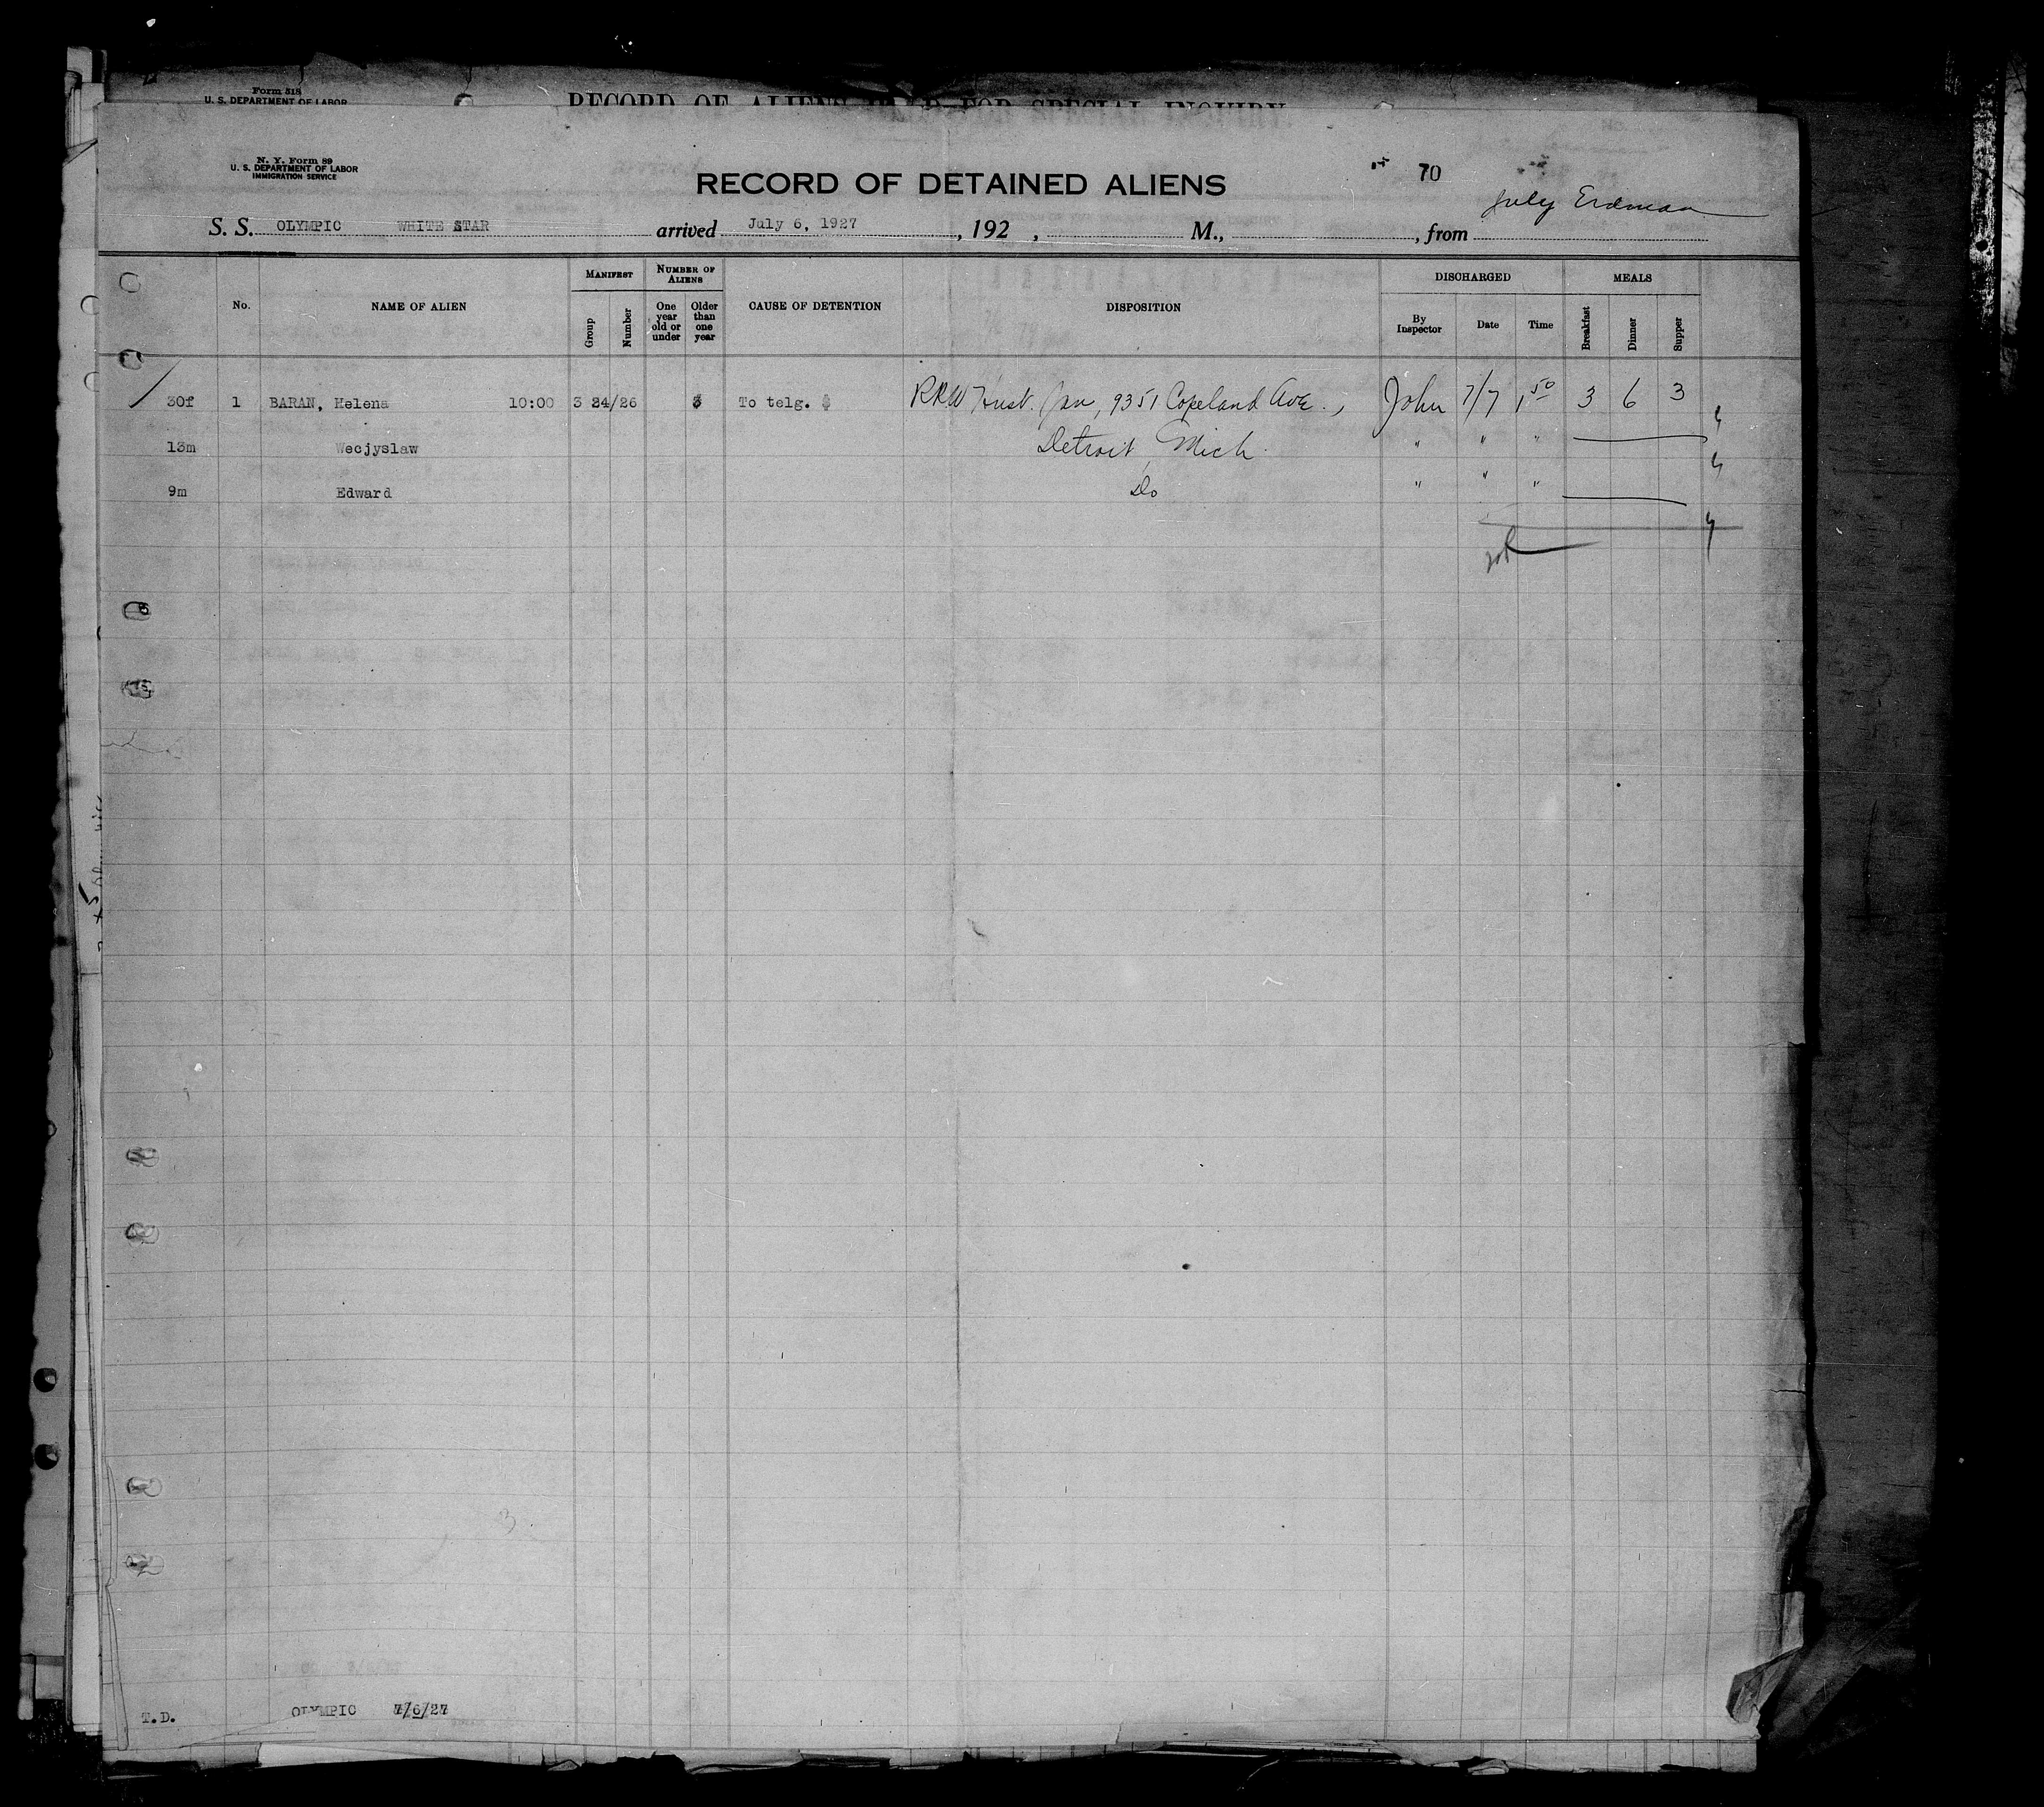 Form 518
U. S. DEPARTMENT OF LABOR
RECORD OF ALIENS HELD FOR SPECIAL INQUIRY
N. Y. Form 89
U. S. DEPARTMENT OF LABOR
IMMIGRATION SERVICE
RECORD OF DETAINED ALIENS
70
July Erdman
S. S. OLYMPIC WHITE STAR arrived July 6, 1927, 192 , M., , from
No. NAME OF ALIEN MANIFEST Group Number NUMBER OF ALIENS One year old or under Older than one year CAUSE OF DETENTION DISPOSITION DISCHARGED By Inspector Date Time MEALS Breakfast Dinner Supper
30f 1 BARAN, Helena 10:00 3 24/26 3 To telg. RRW Husb. Jan, 9351 Copeland Ave., John 7/7 1 50 3 6 3
13m Wecjyslaw Detroit, Mich. " " "
9m Edward Do " " "
T.D. OLYMPIC 7/6/27